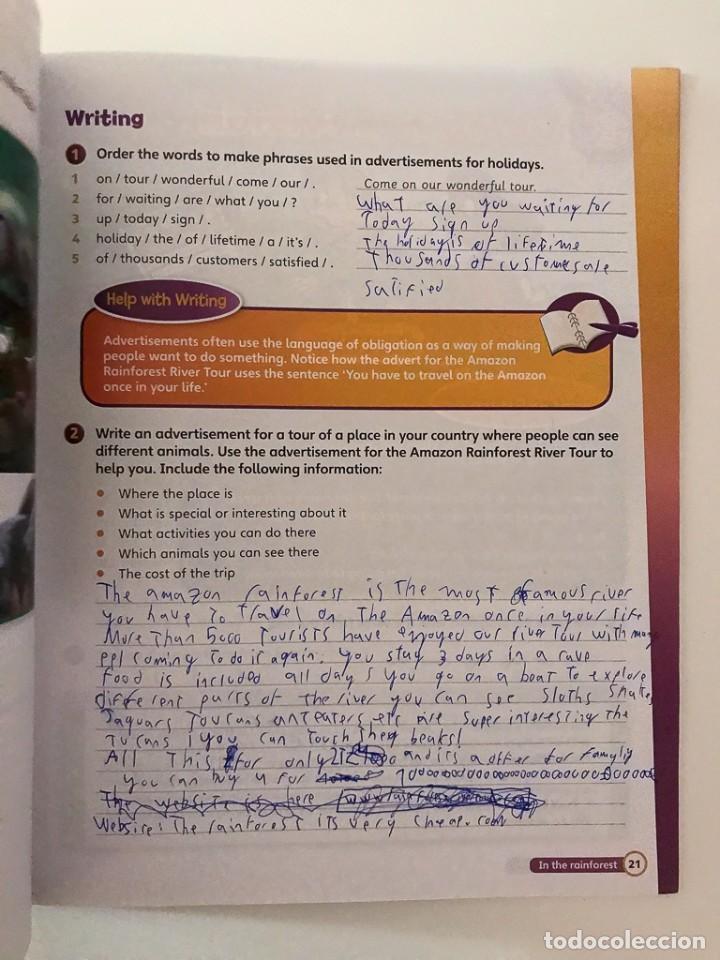 Writing
1 Order the words to make phrases used in advertisements for holidays.
1 on / tour / wonderful / come / our / . Come on our wonderful tour.
2 for / waiting / are / what / you / ? What are you waiting for
3 up / today / sign / . Today sign up
4 holiday / the / of / lifetime / a / it's / . The holiday is of lifetime
5 of / thousands / customers / satisfied / . Thousands of customers are
satified
Help with Writing
Advertisements often use the language of obligation as a way of making
people want to do something. Notice how the advert for the Amazon
Rainforest River Tour uses the sentence 'You have to travel on the Amazon
once in your life.'
2 Write an advertisement for a tour of a place in your country where people can see
different animals. Use the advertisement for the Amazon Rainforest River Tour to
help you. Include the following information:
• Where the place is
• What is special or interesting about it
• What activities you can do there
• Which animals you can see there
• The cost of the trip
The amazon rainforest is The most famous river
you have To travel on The Amazon once in your life
More Than 5000 Tourists have enjoyed our river Tour with many
ppl coming To do it again. you stay 3 days in a
food is included all days you go on a boat to explore
different parts of the river you can see Sloths Snakes
Jaguars Toucans anteaters, super interesting The
Tucans you can Touch They beaks!
All This for only and its a offer for
you can buy 4 for
The website is here
Website: The rainforest its very cheap.com
In the rainforest 21
todocoleccion
todocoleccion.net